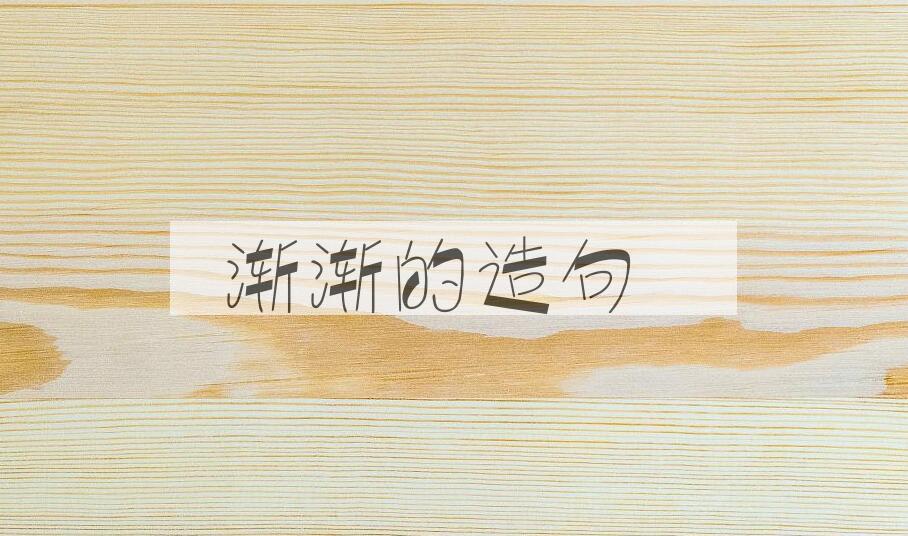 渐渐的造句